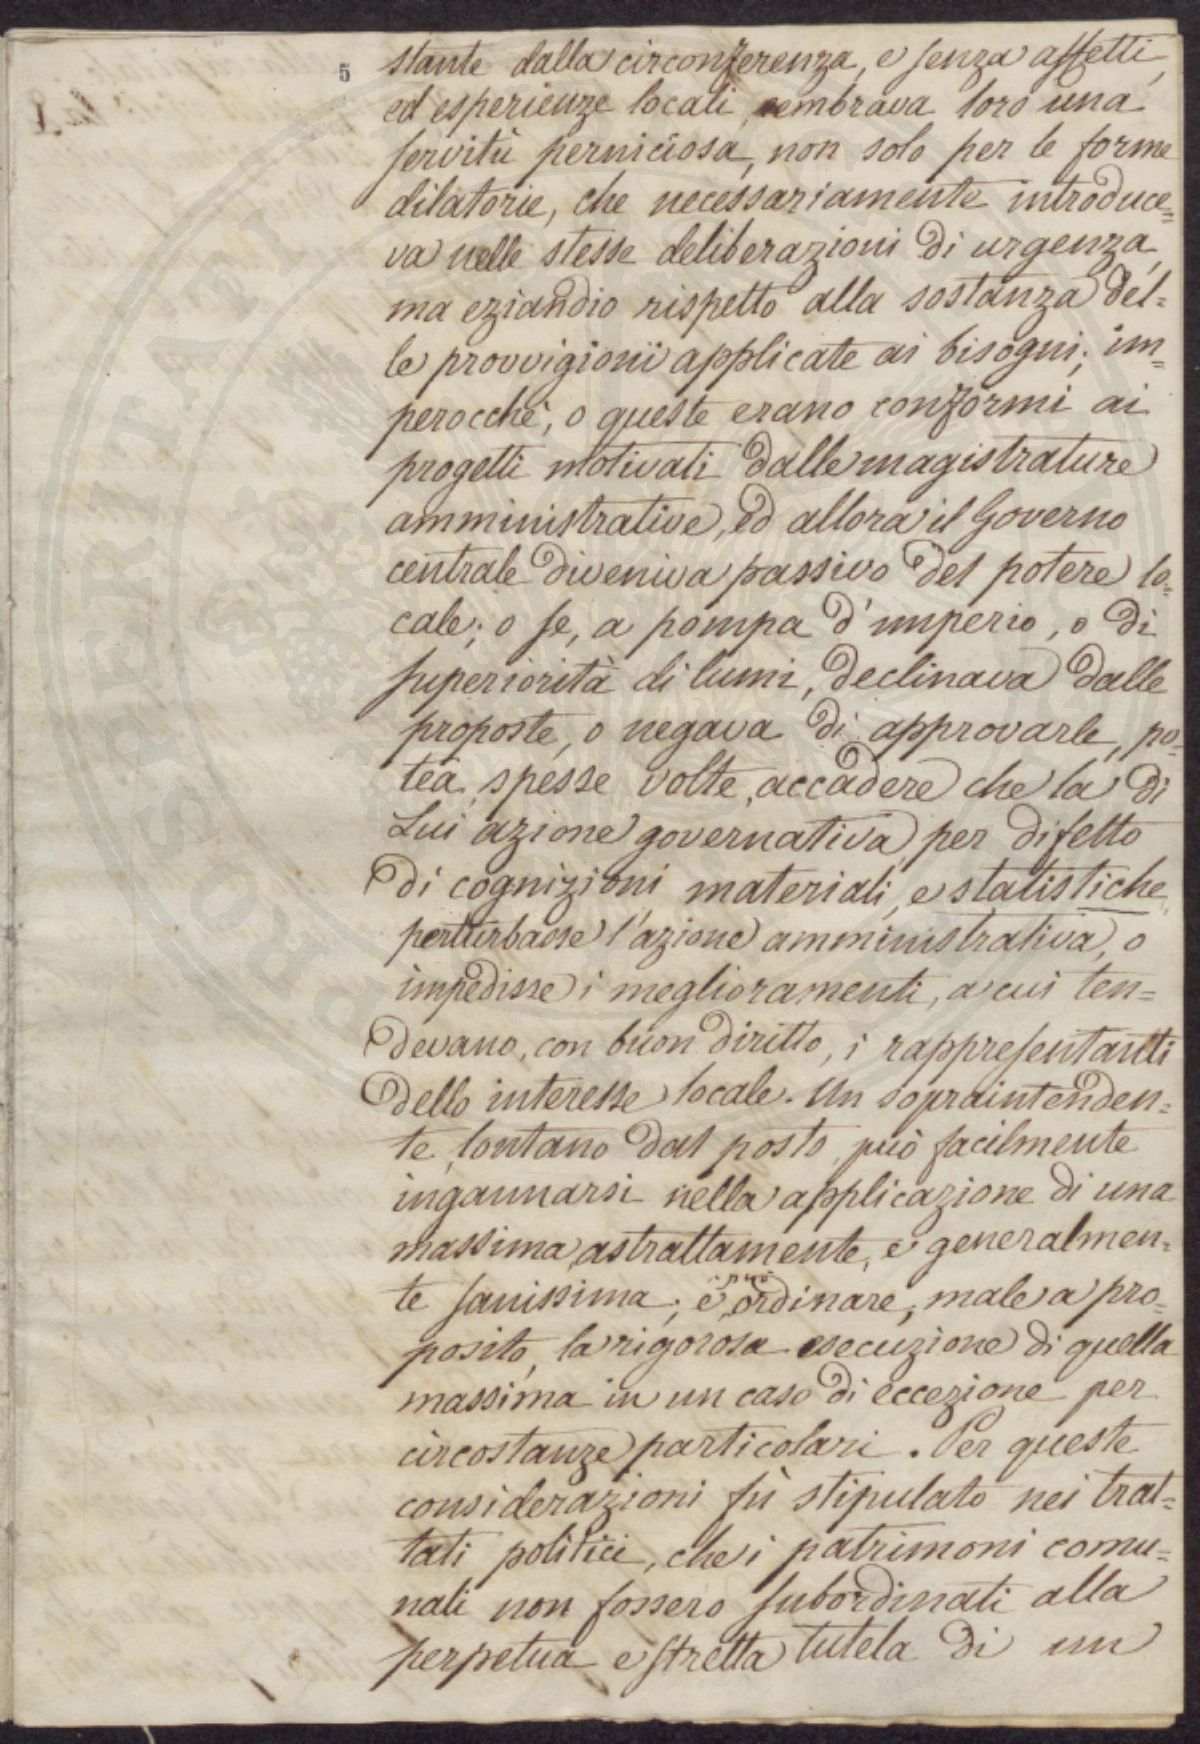 5
stante dalla circonferenza, e senza affetti,
ed esperienze locali, sembrava loro una
servitù perniciosa, non solo per le forme
dilatorie, che necessariamente introduce=
va nelle stesse deliberazioni di urgenza,
ma eziandio rispetto alla sostanza del=
le provvigioni applicate ai bisogni; im=
perocchè, o queste erano conformi ai
progetti motivati dalle magistrature
amministrative, ed allora il Governo
centrale diveniva passivo del potere lo=
cale; o se, a pompa d'imperio, o di
superiorità di lumi, declinava dalle
proposte, o negava di approvarle, po=
tea, spesse volte, accadere che la di
Lui azione governativa, per difetto
di cognizioni materiali, e statistiche,
perturbasse l'azione amministrativa, o
impedisse i meglioramenti, a cui ten=
devano, con buon diritto, i rappresentanti
dello interesse locale. Un sopraintenden=
te, lontano dal posto, può facilmente
ingannarsi nella applicazione di una
massima, astrattamente, e generalmen=
te sanissima; e può ordinare, male a pro=
posito, la rigorosa esecuzione di quella
massima in un caso di eccezione per
circostanze particolari. Per queste
considerazioni fù stipulato nei trat=
tati politici, che i patrimoni comu=
nali non fossero subordinati alla
perpetua e stretta tutela di un
PROSPERITATI